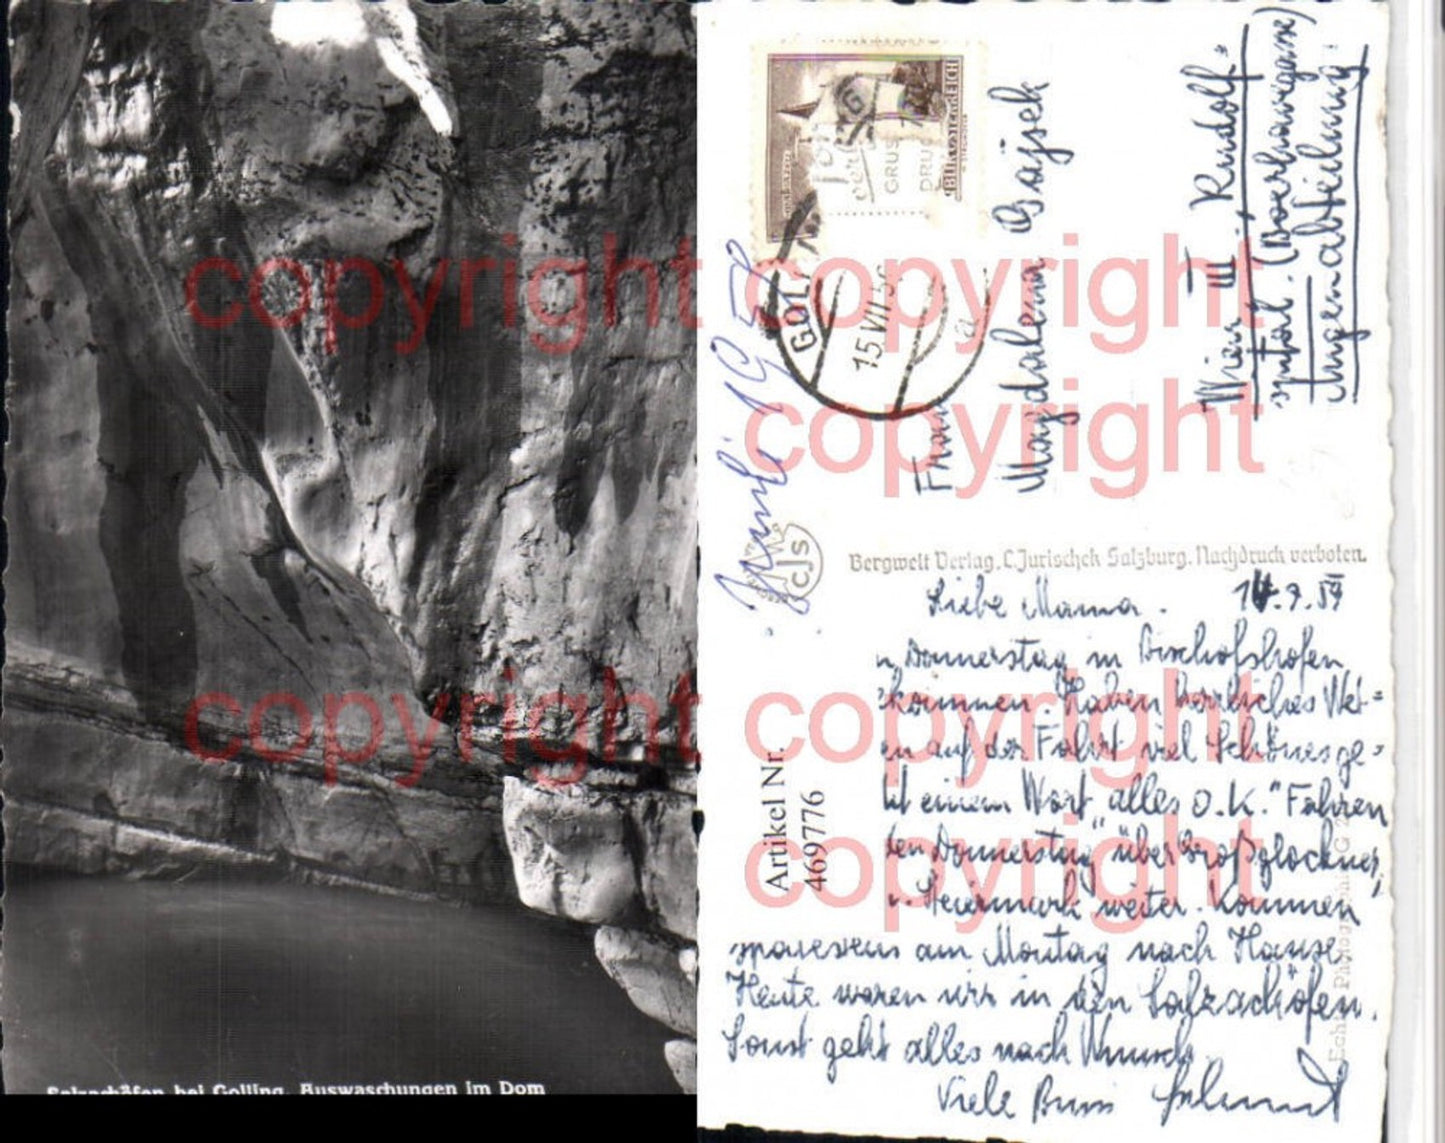 Salzachöfen bei Golling, Auswaschungen im Dom
BURGENLAND
REPUBLIK ÖSTERREICH
GOLL
15.VII.5
GRUS
DRU
Frau
Magdalena Gajsek
Wien III, Rudolf=
spital. (Boerhavegasse)
Augenabteilung
Juli 1959
CJS
Bergwelt Verlag, C. Jurischek Salzburg. Nachdruck verboten.
Liebe Mama. 14.7.59
Donnerstag in Bischofshofen
kommen. Haben herrliches Wet=
auf der Fahrt viel Schönes ge=
einem Wort "alles O.K." Fahren
Donnerstag über Großglockner
Steiermark weiter. Kommen
am Montag nach Hause.
Heute waren wir in den Salzachöfen.
Sonst geht alles nach Wunsch.
Viele Bussi Helmut
Artikel Nr.
469776
copyright
copyright
copyright
copyright
copyright
copyright